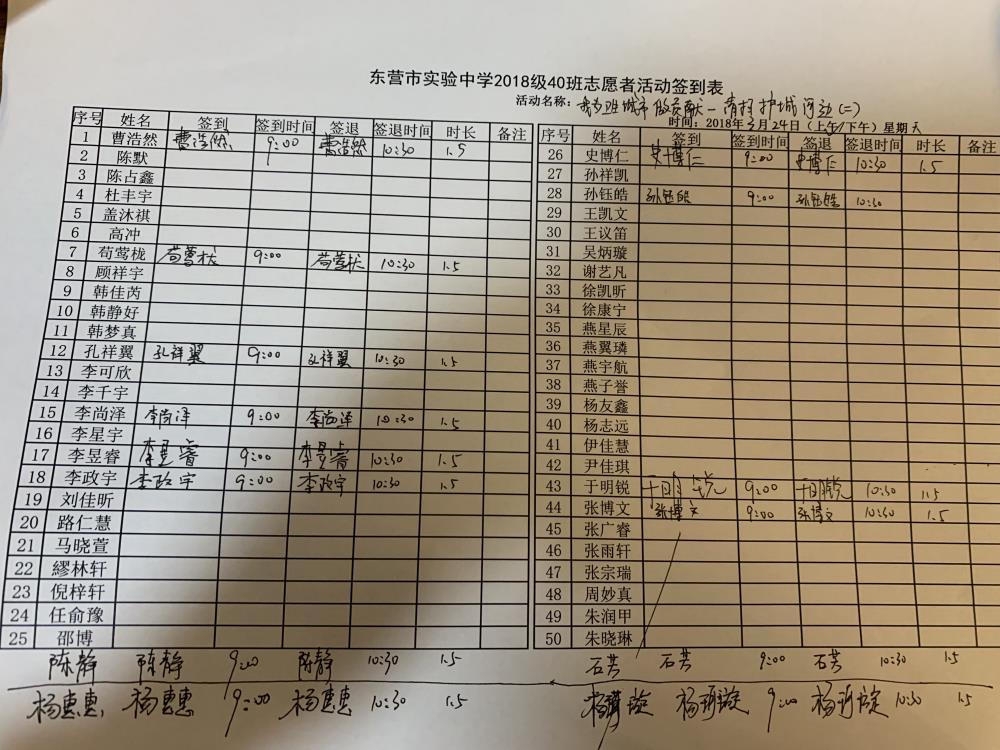 东营市实验中学2018级40班志愿者活动签到表
活动名称：我为班城市做贡献－清扫护城河边(二)
时间：2018年3月24日（上午/下午）星期天
序号 姓名 签到 签到时间 签退 签退时间 时长 备注
1 曹浩然 曹浩然 9:00 曹浩然 10:30 1.5
2 陈默
3 陈占鑫
4 杜丰宇
5 盖沐祺
6 高冲
7 荀莺栊 荀莺栊 9:00 荀莺栊 10:30 1.5
8 顾祥宇
9 韩佳芮
10 韩静好
11 韩梦真
12 孔祥翼 孔祥翼 9:00 孔祥翼 10:30 1.5
13 李可欣
14 李千宇
15 李尚泽 李尚泽 9:00 李尚泽 10:30 1.5
16 李星宇
17 李昱睿 李昱睿 9:00 李昱睿 10:30 1.5
18 李政宇 李政宇 9:00 李政宇 10:30 1.5
19 刘佳昕
20 路仁慧
21 马晓萱
22 繆林轩
23 倪梓轩
24 任俞豫
25 邵博
陈静 陈静 9:00 陈静 10:30 1.5
杨惠惠 杨惠惠 9:00 杨惠惠 10:30 1.5
序号 姓名 签到 签到时间 签退 签退时间 时长 备注
26 史博仁 史博仁 9:00 史博仁 10:30 1.5
27 孙祥凯
28 孙钰皓 孙钰皓 9:00 孙钰皓 10:30
29 王凯文
30 王议笛
31 吴炳璇
32 谢艺凡
33 徐凯昕
34 徐康宁
35 燕星辰
36 燕翼璘
37 燕宇航
38 燕子誉
39 杨友鑫
40 杨志远
41 伊佳慧
42 尹佳琪
43 于明锐 于明锐 9:00 于明锐 10:30 1.5
44 张博文 张博文 9:00 张博文 10:30 1.5
45 张广睿
46 张雨轩
47 张宗瑞
48 周妙真
49 朱润甲
50 朱晓琳
石芸 石芸 9:00 石芸 10:30 1.5
杨玥琔 杨玥琔 9:00 杨玥琔 10:30 1.5